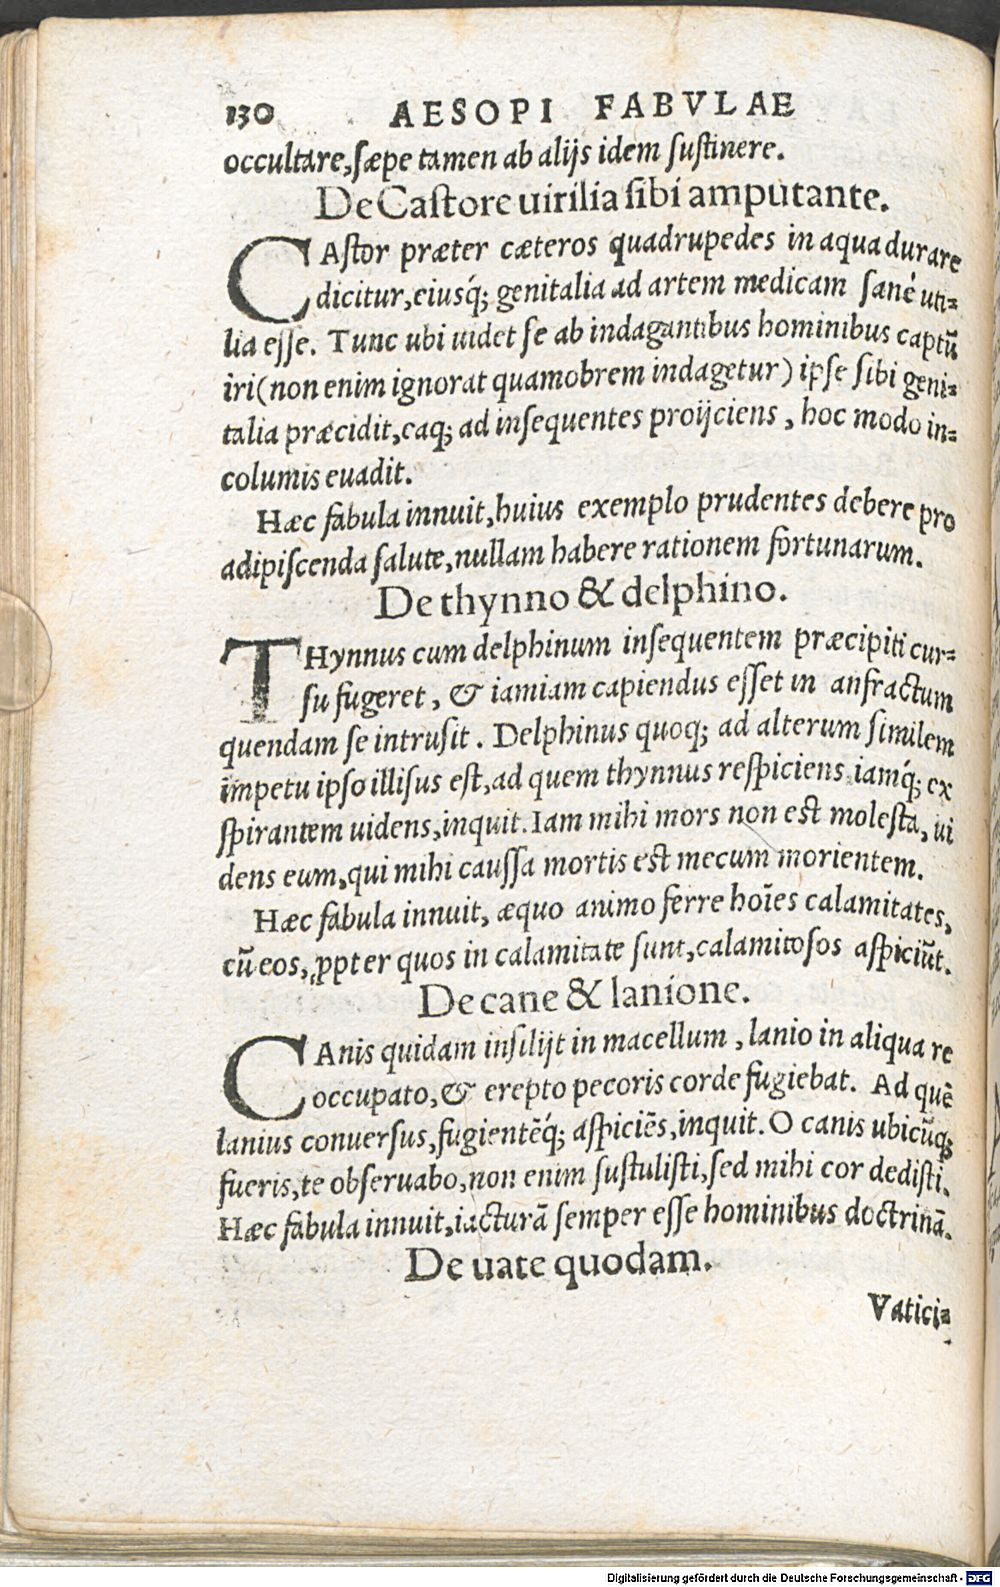 130 AESOPI FABVLAE
occultare, sæpe tamen ab alijs idem ſuſtinere.
De Caſtore uirilia ſibi amputante.
CAſtor præter cæteros quadrupedes in aqua durare
dicitur, eiusq́; genitalia ad artem medicam ſanè uti-
lia eſſe. Tunc ubi uidet ſe ab indagantibus hominibus captũ
iri (non enim ignorat quamobrem indagetur) ipſe ſibi geni-
talia præcidit, eaq; ad inſequentes proijciens, hoc modo in-
columis euadit.
Hæc fabula innuit, huius exemplo prudentes debere pro
adipiſcenda ſalute, nullam habere rationem fortunarum.
De thynno & delphino.
THynnus cum delphinum inſequentem præcipiti cur-
ſu fugeret, & iamiam capiendus eſſet in anfractum
quendam ſe intruſit. Delphinus quoq; ad alterum ſimilem
impetu ipſo illiſus eſt, ad quem thynnus reſpiciens iamq́; ex
ſpirantem uidens, inquit. Iam mihi mors non eſt moleſta, ui
dens eum, qui mihi cauſſa mortis eſt mecum morientem.
Hæc fabula innuit, æquo animo ferre hoĩes calamitates,
cũ eos, ꝓpter quos in calamitate ſunt, calamitoſos aſpiciũt.
De cane & lanione.
CAnis quidam inſilijt in macellum, lanio in aliqua re
occupato, & erepto pecoris corde fugiebat. Ad quẽ
lanius conuerſus, fugientẽq́; aſpiciẽs, inquit. O canis ubicũq;
fueris, te obſeruabo, non enim ſuſtuliſti, ſed mihi cor dediſti.
Hæc fabula innuit, iacturã ſemper eſſe hominibus doctrinã.
De uate quodam.
Vatici-
Digitalisierung gefördert durch die Deutsche Forschungsgemeinschaft - DFG